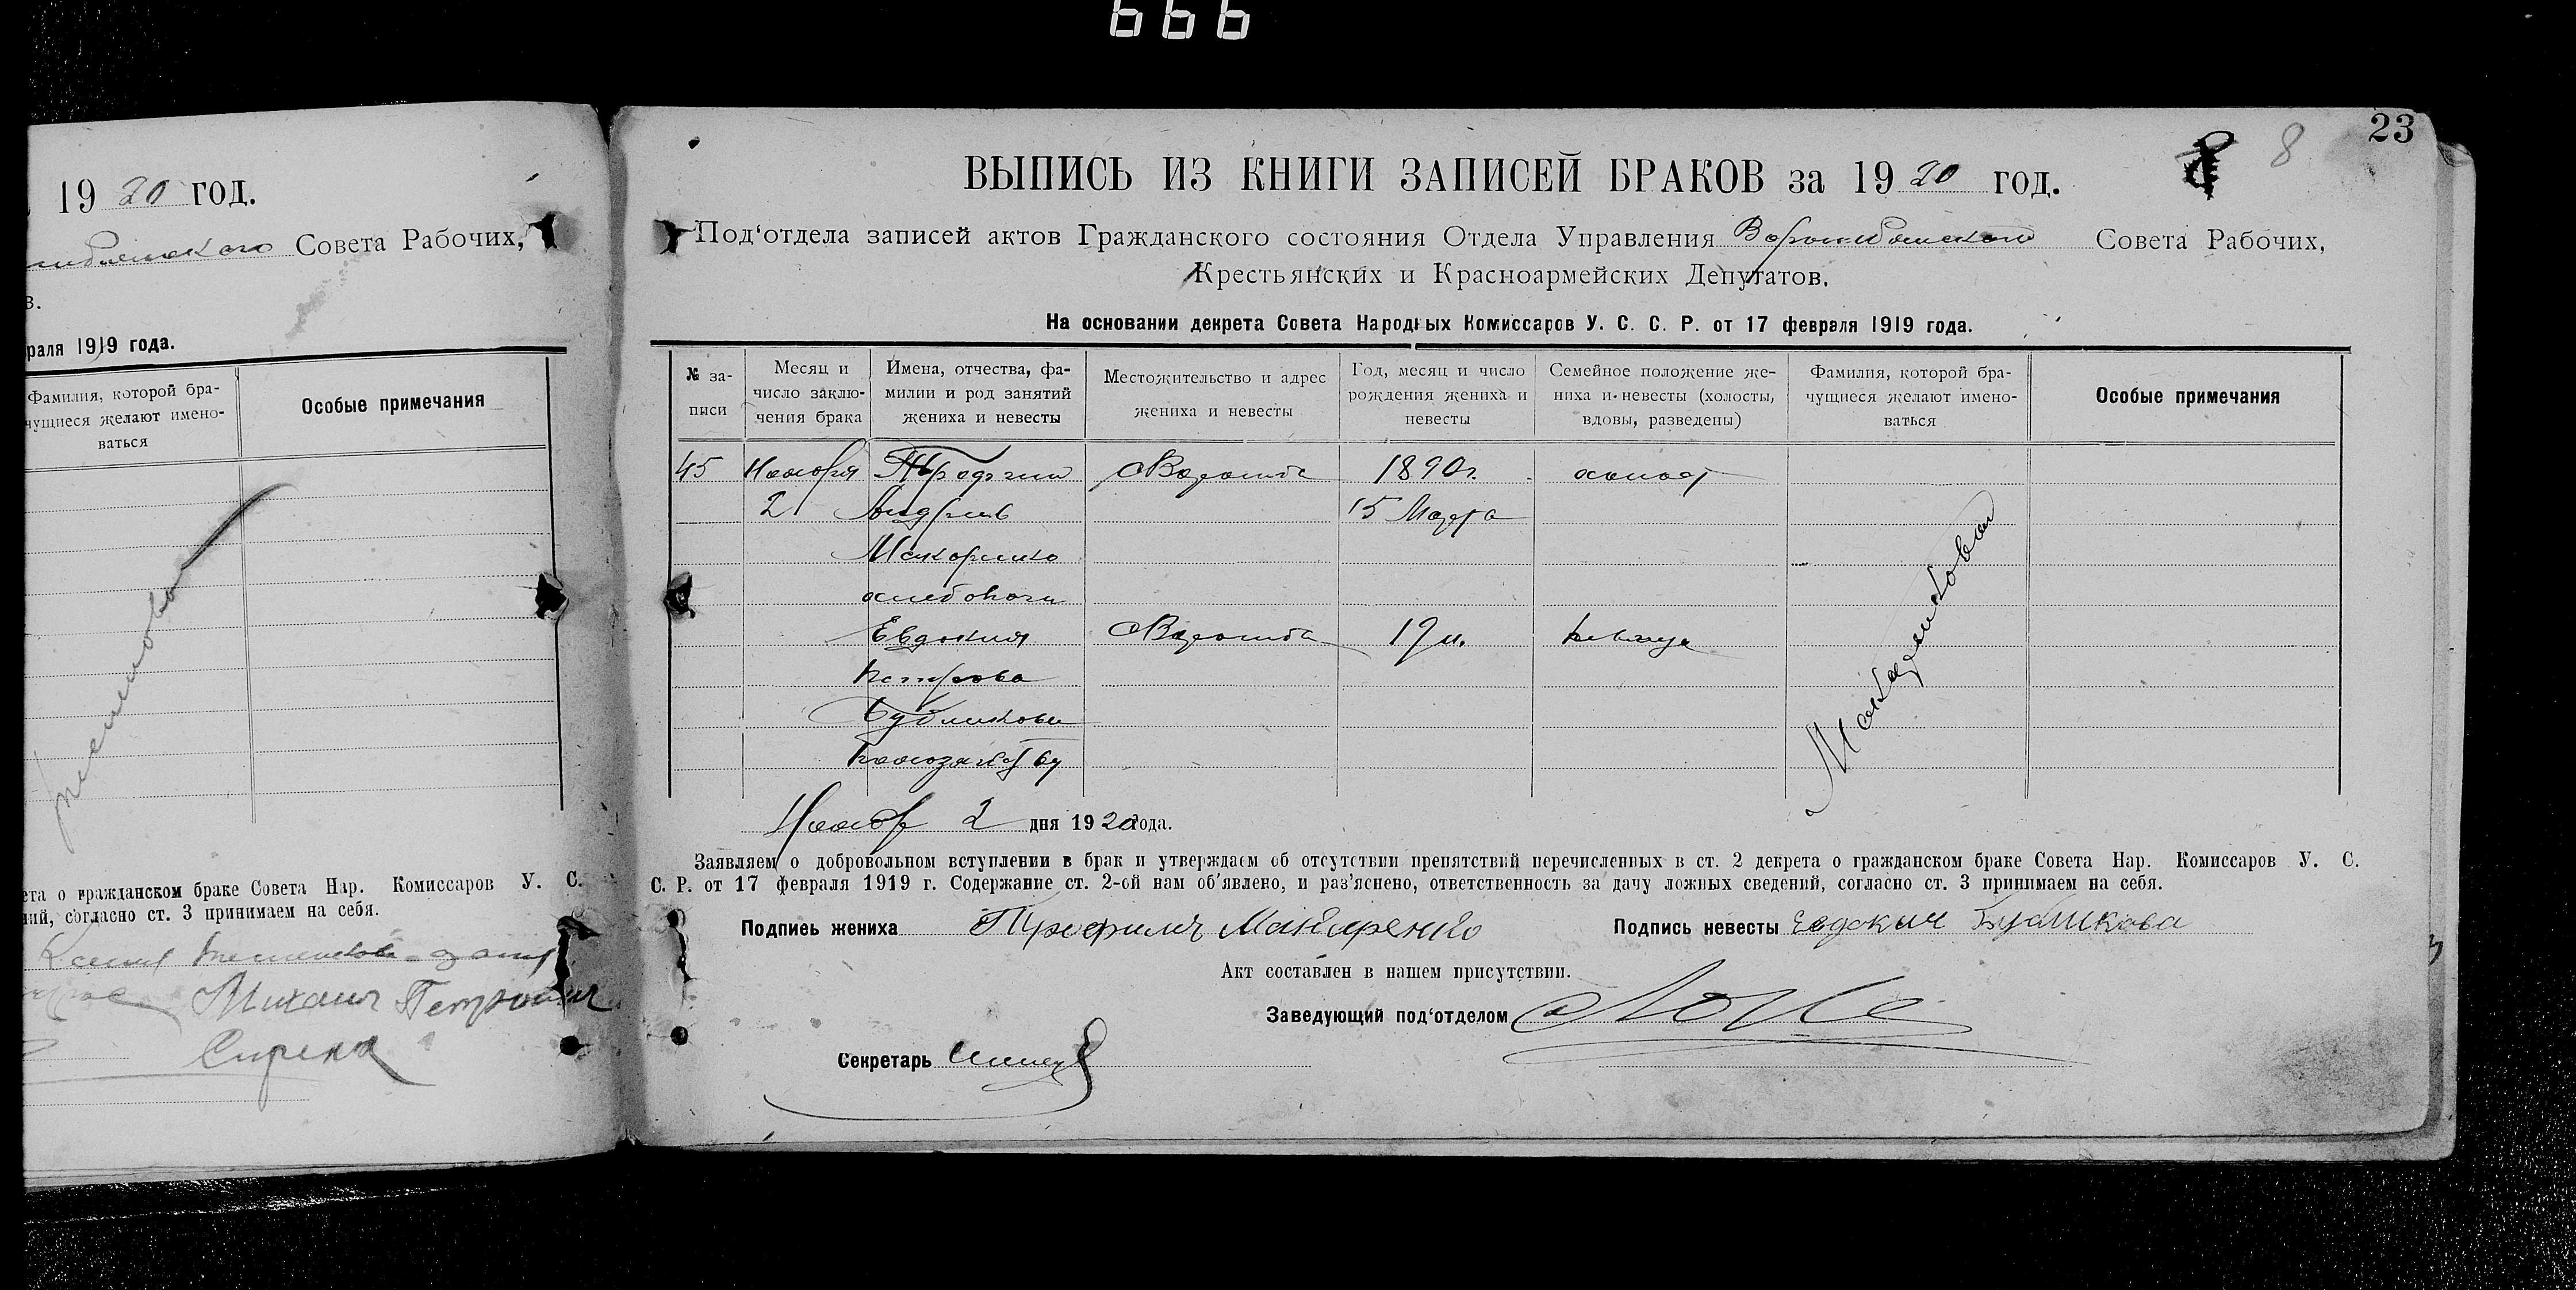 666
19 20 год.
Совета Рабочих,
в.
раля 1919 года.
Фамилия, которой бра-
чущиеся желают имено-
ваться
Особые примечания
ета о гражданском браке Совета Нар. Комиссаров У. С.
ний, согласно ст. 3 принимаем на себя.
Михаил Петрович
Сирена
23
8
ВЫПИСЬ ИЗ КНИГИ ЗАПИСЕЙ БРАКОВ за 19 20 год.
Под‘отдела записей актов Гражданского состояния Отдела Управления Ворожбянского Совета Рабочих,
Крестьянских и Красноармейских Депутатов.
На основании декрета Совета Народных Комиссаров У. С. С. Р. от 17 февраля 1919 года.
№ за-
писи
Месяц и
число заклю-
чения брака
Имена, отчества, фа-
милии и род занятий
жениха и невесты
Местожительство и адрес
жениха и невесты
Год, месяц и число
рождения жениха и
невесты
Семейное положение же-
ниха и невесты (холосты,
вдовы, разведены)
Фамилия, которой бра-
чущиеся желают имено-
ваться
Особые примечания
45 Ноября с Ворожба 1890 г. холост
2 Андреев 15 Марта
Макаренко
хлебопаш
Евдокия с Ворожба 19 л. девица
Петрова
Бубликова
домохозяйство
Ноябр 2 дня 1920 года.
Заявляем о добровольном вступлении в брак и утверждаем об отсутствии препятствий перечисленных в ст. 2 декрета о гражданском браке Совета Нар. Комиссаров У. С.
С. Р. от 17 февраля 1919 г. Содержание ст. 2-ой нам об'явлено, и раз'яснено, ответственность за дачу ложных сведений, согласно ст. 3 принимаем на себя.
Подпись жениха Трофимъ Макаренко Подпись невесты Евдокия Бубликова
Акт составлен в нашем присутствии.
Заведующий под‘отделом
Секретарь